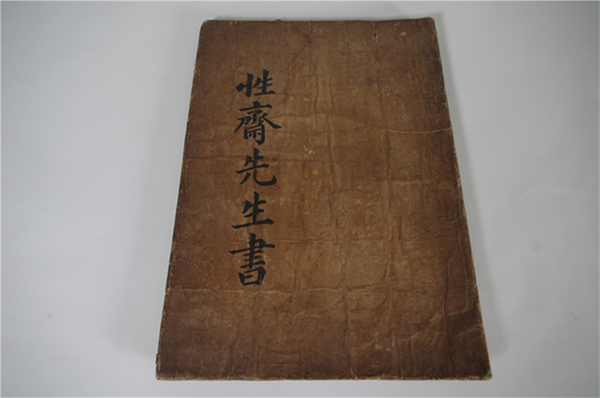 性齋先生書